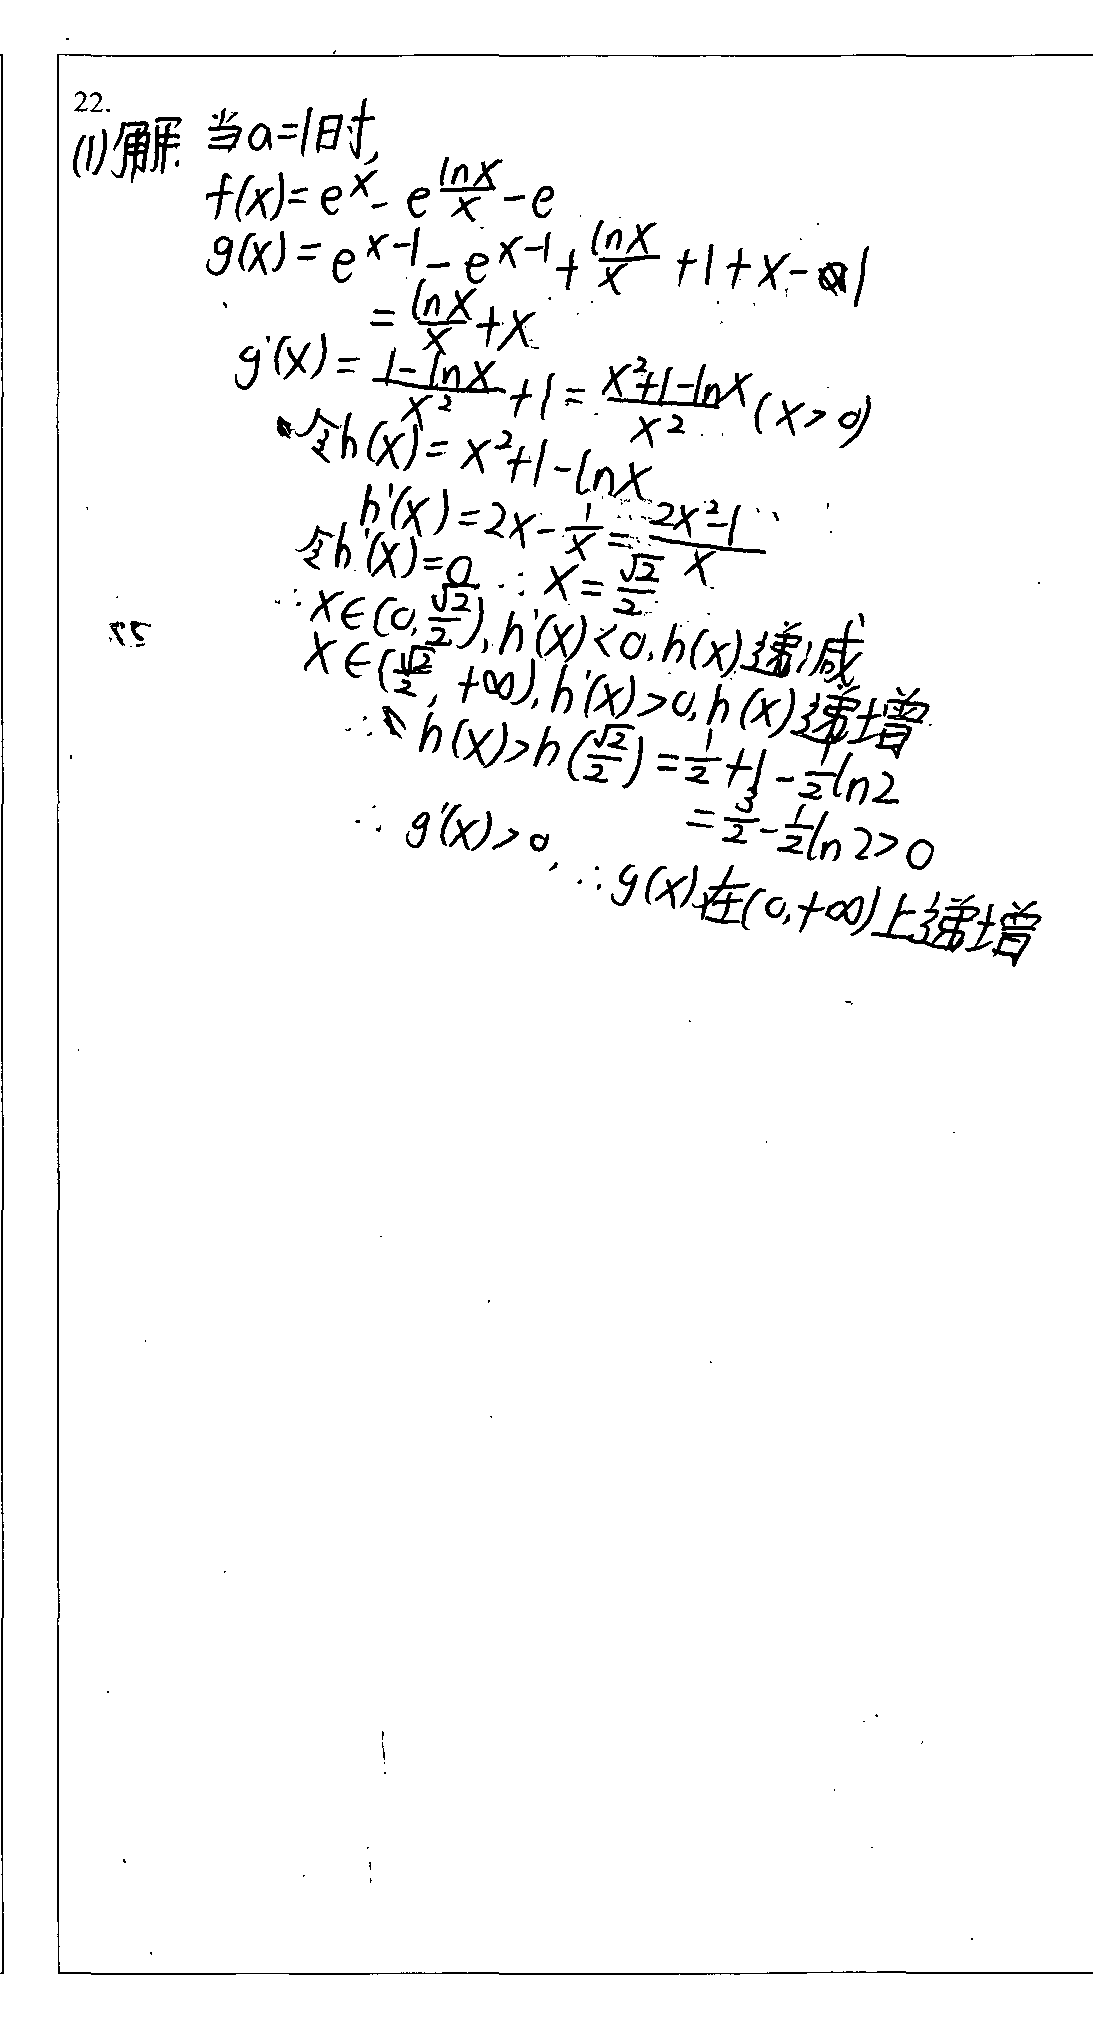 22.
(1)解 当a=1时,
f(x)=e^x-e\frac{lnx}{x}-e
g(x)=e^{x-1}-e^{x-1}+\frac{lnx}{x}+1+x-1
=\frac{lnx}{x}+x
g'(x)=\frac{1-lnx}{x^2}+1=\frac{x^2+1-lnx}{x^2}(x>0)
令h(x)=x^2+1-lnx
h'(x)=2x-\frac{1}{x}=\frac{2x^2-1}{x}
令h'(x)=0 ∴x=\frac{√2}{2}
∴x∈(0,\frac{√2}{2}),h'(x)<0,h(x)递减
x∈(\frac{√2}{2},+∞),h'(x)>0,h(x)递增
∴h(x)>h(\frac{√2}{2})=\frac{1}{2}+1-\frac{1}{2}ln2
=\frac{3}{2}-\frac{1}{2}ln2>0
∴g'(x)>0,∴g(x)在(0,+∞)上递增